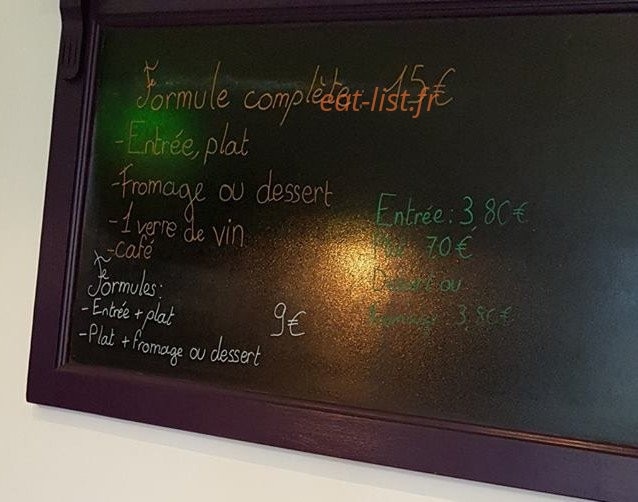 Formule complète 15€
eat-list.fr
-Entrée, plat
-Fromage ou dessert
-1 verre de vin
-café
Formules:
-Entrée + plat
9€
-Plat + fromage ou dessert
Entrée: 3,80€
70€
ou
3,80€